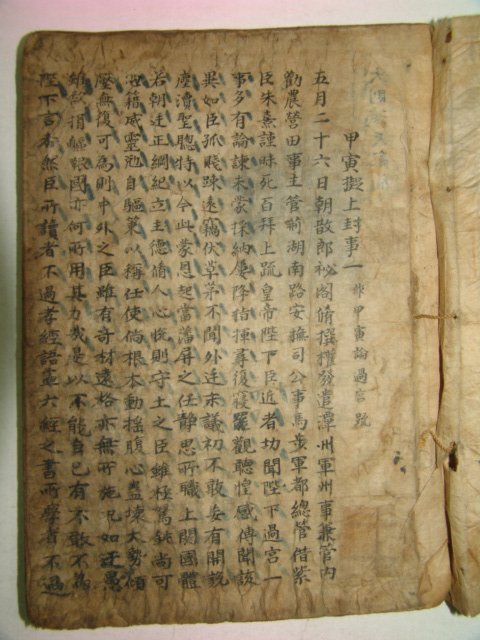 甲寅擬上封事一 非甲寅論過宮䟽
五月二十六日朝散郎祕閣脩撰權發遣潭州軍州事兼管內
勸農營田事主管荊湖南路安撫司公事馬步軍都總管借紫
臣朱熹謹昧死百拜上䟽皇帝陛下臣近者切聞陛下過宮一
事多有論諫未蒙採納屢降指揮尋復寢罷觀聽惶惑傳聞駭
異如臣孤賤踈遠竊伏草茅不聞外廷末議初不敢妄有開說
塵瀆聖聰特以今此蒙恩起當藩屏之任靜思所職上関國體
若朝廷正綱紀立主德脩人心悅則守土之臣雖極駑鈍尚可
憑籍威靈勉自驅策以稱任使倘根本動搖腹心蠱壞大勢傾
壓無復可為則中外之臣雖有奇材遠略亦無所施况如迂愚
雖欲捐軀報國亦何所用其力哉是以不能自已有不敢不為
陛下言者然臣所讀者不過孝經語孟六經之書所學者不過